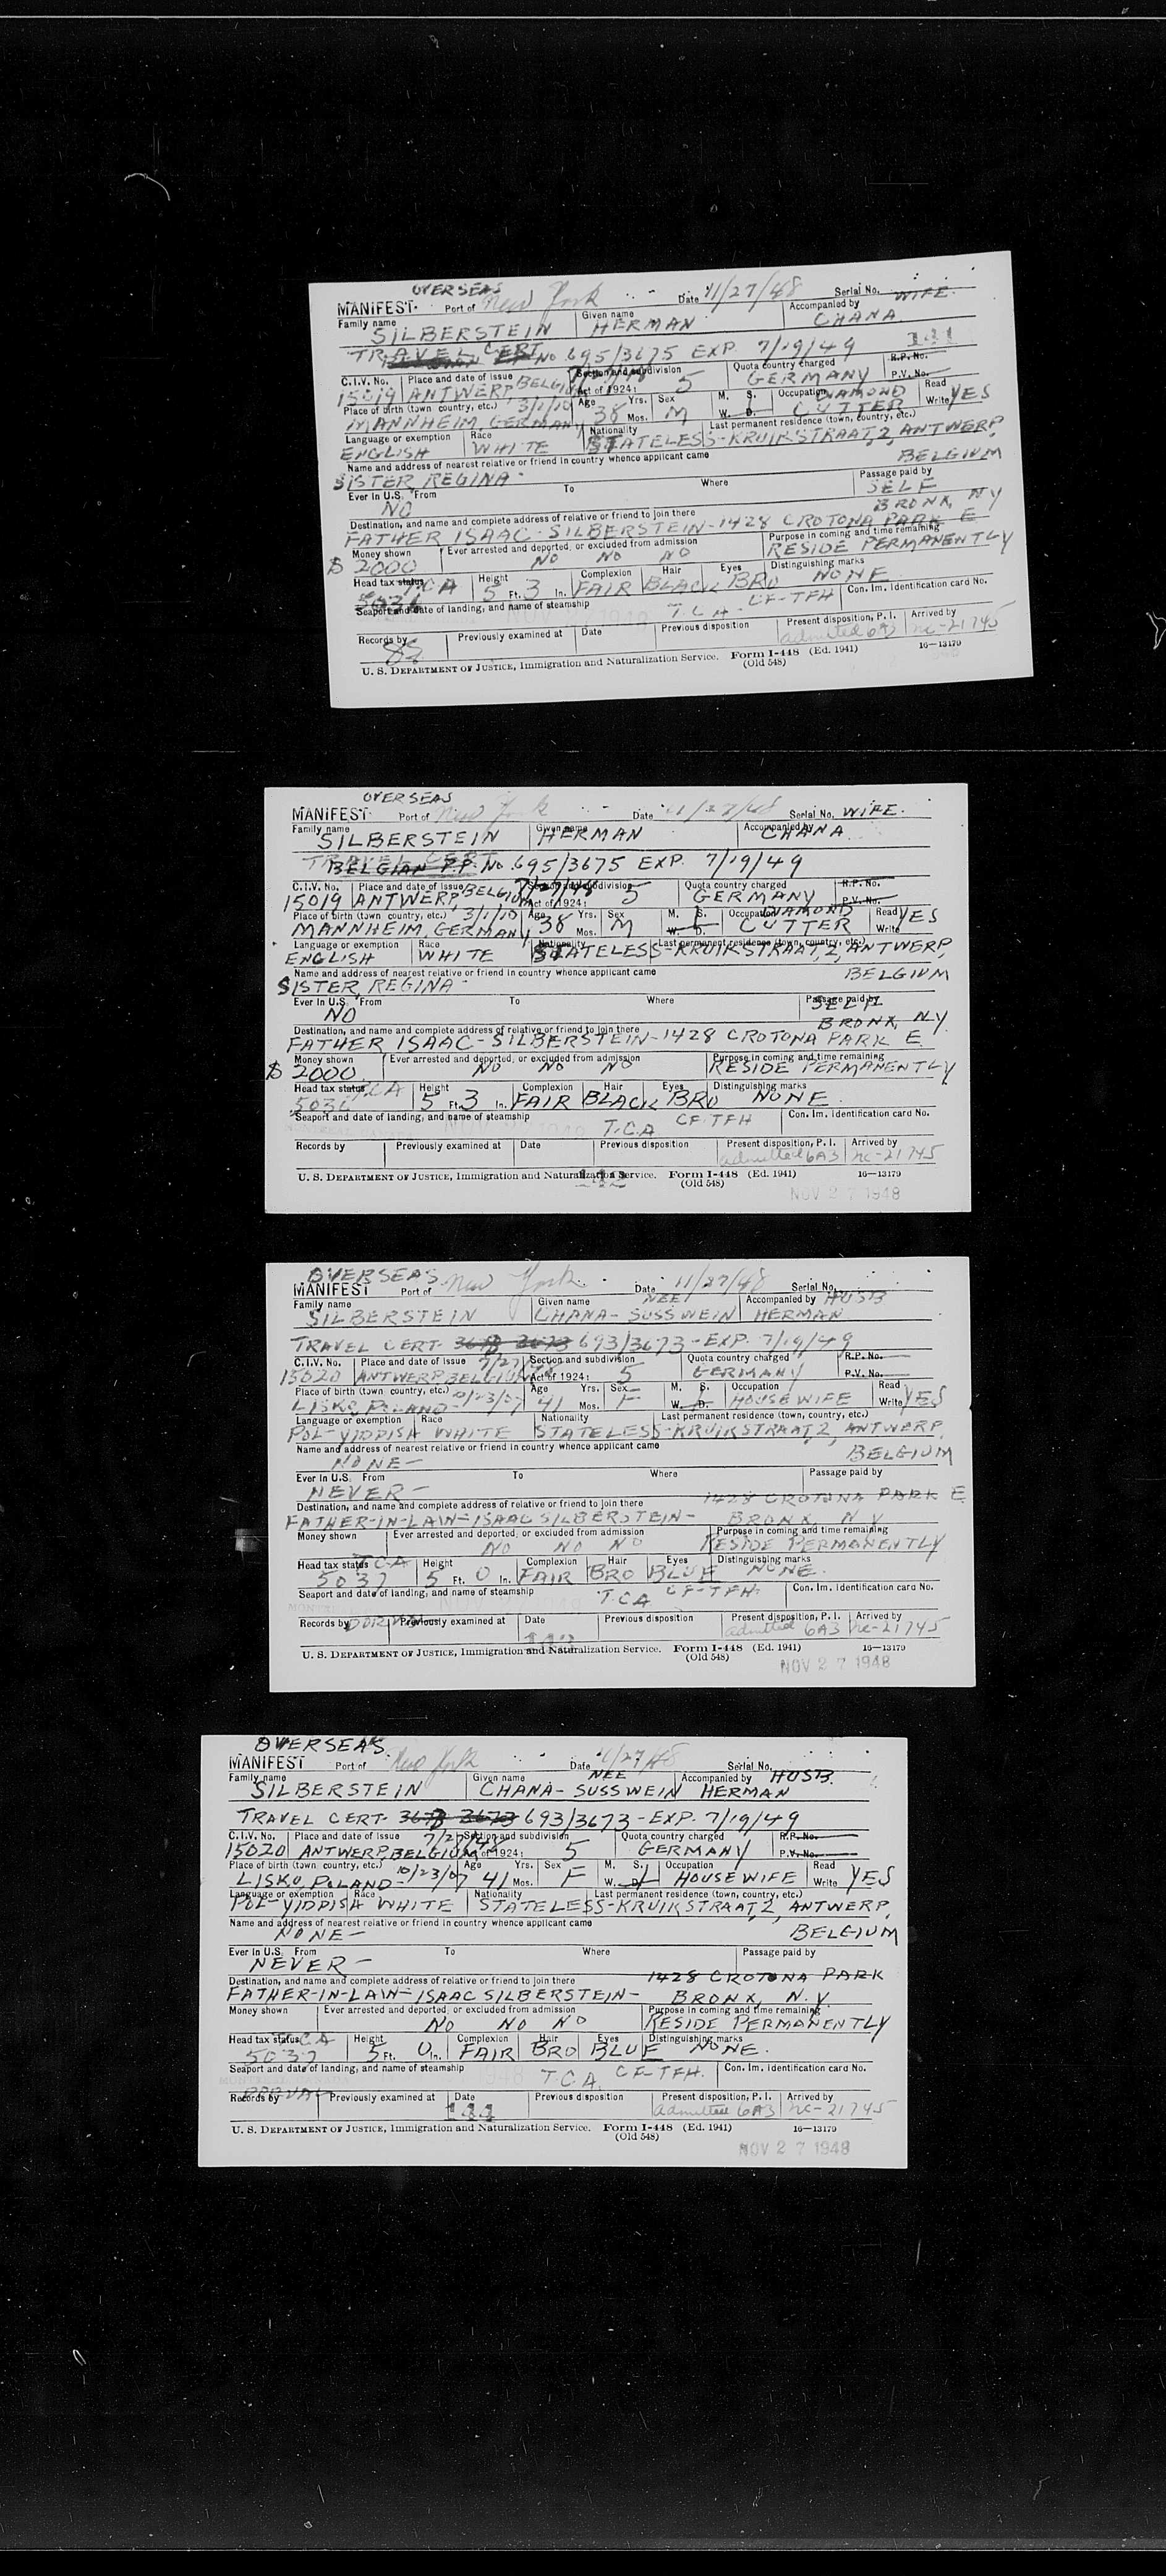 OVERSEAS
MANIFEST Port of New York Date 11/27/48 Serial No.
Family name Given name Accompanied by WIFE.
SILBERSTEIN HERMAN CHANA
TRAVEL CERT No 695/3675 EXP. 7/19/49 141
C.I.V. No. Place and date of issue Section and subdivision Quota country charged R.P. No.
15019 ANTWERP, BELGIUM Act of 1924: 5 GERMANY P.V. No.
Place of birth (town country, etc.) 3/1/10 Age Yrs. Sex M. S. Occupation DIAMOND Read
MANNHEIM, GERMANY 38 Mos. M W. D. CUTTER Write YES
Language or exemption Race Nationality Last permanent residence (town, country, etc.)
ENGLISH WHITE STATELESS-KRUIKSTRAAT, 2, ANTWERP,
Name and address of nearest relative or friend in country whence applicant came BELGIUM
SISTER REGINA
Ever in U.S. From To Where Passage paid by
NO SELF
BRONX, NY
Destination, and name and complete address of relative or friend to join there
FATHER ISAAC-SILBERSTEIN-1428 CROTONA PARK E
Money shown Ever arrested and deported, or excluded from admission Purpose in coming and time remaining
$ 2000 NO NO NO RESIDE PERMANENTLY
Head tax status TCA Height Complexion Hair Eyes Distinguishing marks
5036 5 Ft. 3 In. FAIR BLACK BRO NONE
Seaport and date of landing, and name of steamship T.C.A. CF-TFH Con. Im. Identification card No.
Records by Previously examined at Date Previous disposition Present disposition, P. I. Arrived by
admitted 6A3 nc-21745
U. S. DEPARTMENT OF JUSTICE, Immigration and Naturalization Service. Form I-448 (Ed. 1941) 16—13179
(Old 548)
OVERSEAS
MANIFEST Port of New York Date 11/27/48 Serial No. WIFE.
Family name Given name Accompanied by
SILBERSTEIN HERMAN CHANA
TRAVEL CERT
BELGIAN P.P. No. 695/3675 EXP. 7/19/49
C.I.V. No. Place and date of issue 7/27/48 Section and subdivision Quota country charged R.P. No.
15019 ANTWERP, BELGIUM Act of 1924: 5 GERMANY P.V. No.
Place of birth (town country, etc.) 3/1/10 Age Yrs. Sex M. S. Occupation DIAMOND Read
MANNHEIM, GERMANY 38 Mos. M W. D. CUTTER Write YES
Language or exemption Race Nationality Last permanent residence (town, country, etc.)
ENGLISH WHITE STATELESS-KRUIKSTRAAT, 2, ANTWERP,
Name and address of nearest relative or friend in country whence applicant came BELGIUM
SISTER, REGINA
Ever in U.S. From To Where Passage paid by
NO SELF
BRONX, N.Y.
Destination, and name and complete address of relative or friend to join there
FATHER ISAAC-SILBERSTEIN-1428 CROTONA PARK E
Money shown Ever arrested and deported, or excluded from admission Purpose in coming and time remaining
$ 2000 NO NO NO RESIDE PERMANENTLY
Head tax status TCA Height Complexion Hair Eyes Distinguishing marks
5036 5 Ft. 3 In. FAIR BLACK BRO NONE
Seaport and date of landing, and name of steamship T.C.A CF-TFH Con. Im. Identification card No.
Records by Previously examined at Date Previous disposition Present disposition, P. I. Arrived by
admitted 6A3 nc-21745
U. S. DEPARTMENT OF JUSTICE, Immigration and Naturalization Service. Form I-448 (Ed. 1941) 16—13179
142 (Old 548) NOV 27 1948
OVERSEAS
MANIFEST Port of New York Date 11/27/48 Serial No.
Family name Given name NEE Accompanied by HUSB
SILBERSTEIN CHANA-SUSSWEIN HERMAN
TRAVEL CERT. 3673 693/3673-EXP. 7/19/49
C.I.V. No. Place and date of issue 7/27/48 Section and subdivision Quota country charged R.P. No.
15020 ANTWERP, BELGIUM Act of 1924: 5 GERMANY P.V. No.
Place of birth (town country, etc.) Age Yrs. Sex M. S. Occupation Read
LISKO, POLAND-10/23/07 41 Mos. F W. D. HOUSEWIFE Write YES
Language or exemption Race Nationality Last permanent residence (town, country, etc.)
POL-YIDDISH WHITE STATELESS-KRUIKSTRAAT, 2, ANTWERP.
Name and address of nearest relative or friend in country whence applicant came BELGIUM
NONE-
Ever in U.S. From To Where Passage paid by
NEVER- 1428 CROTONA PARK E
Destination, and name and complete address of relative or friend to join there
FATHER-IN-LAW-ISAAC SILBERSTEIN- BRONX, N.Y
Money shown Ever arrested and deported, or excluded from admission Purpose in coming and time remaining
NO NO NO RESIDE PERMANENTLY
Head tax status TCA Height Complexion Hair Eyes Distinguishing marks
5037 5 Ft. 0 In. FAIR BRO BLUE NONE.
Seaport and date of landing, and name of steamship T.C.A CF-TFH. Con. Im. Identification card No.
Records by DORVAL Previously examined at Date Previous disposition Present disposition, P. I. Arrived by
admitted 6A3 nc-21745
U. S. DEPARTMENT OF JUSTICE, Immigration and Naturalization Service. Form I-448 (Ed. 1941) 16—13179
(Old 548) NOV 27 1948
OVERSEAS
MANIFEST Port of New York Date 11/27/48 Serial No.
Family name Given name NEE Accompanied by HUSB.
SILBERSTEIN CHANA-SUSSWEIN HERMAN
TRAVEL CERT. 3673 693/3673-EXP. 7/19/49
C.I.V. No. Place and date of issue 7/27/48 Section and subdivision Quota country charged R.P. No.
15020 ANTWERP, BELGIUM Act of 1924: 5 GERMANY P.V. No.
Place of birth (town country, etc.) Age Yrs. Sex M. S. Occupation Read
LISKO, POLAND-10/23/07 41 Mos. F W. D. HOUSEWIFE Write YES
Language or exemption Race Nationality Last permanent residence (town, country, etc.)
POL-YIDDISH WHITE STATELESS-KRUIKSTRAAT, 2, ANTWERP.
Name and address of nearest relative or friend in country whence applicant came BELGIUM
NONE-
Ever in U.S. From To Where Passage paid by
NEVER- 1428 CROTONA PARK
Destination, and name and complete address of relative or friend to join there
FATHER-IN-LAW-ISAAC SILBERSTEIN- BRONX, N.Y.
Money shown Ever arrested and deported, or excluded from admission Purpose in coming and time remaining
NO NO NO RESIDE PERMANENTLY
Head tax status TCA Height Complexion Hair Eyes Distinguishing marks
5037 5 Ft. 0 In. FAIR BRO BLUE NONE.
Seaport and date of landing, and name of steamship T.C.A. CF-TFH. Con. Im. Identification card No.
DORVAL
Records by Previously examined at Date Previous disposition Present disposition, P. I. Arrived by
144 admitted 6A3 nc-21745
U. S. DEPARTMENT OF JUSTICE, Immigration and Naturalization Service. Form I-448 (Ed. 1941) 16—13179
(Old 548) NOV 27 1948